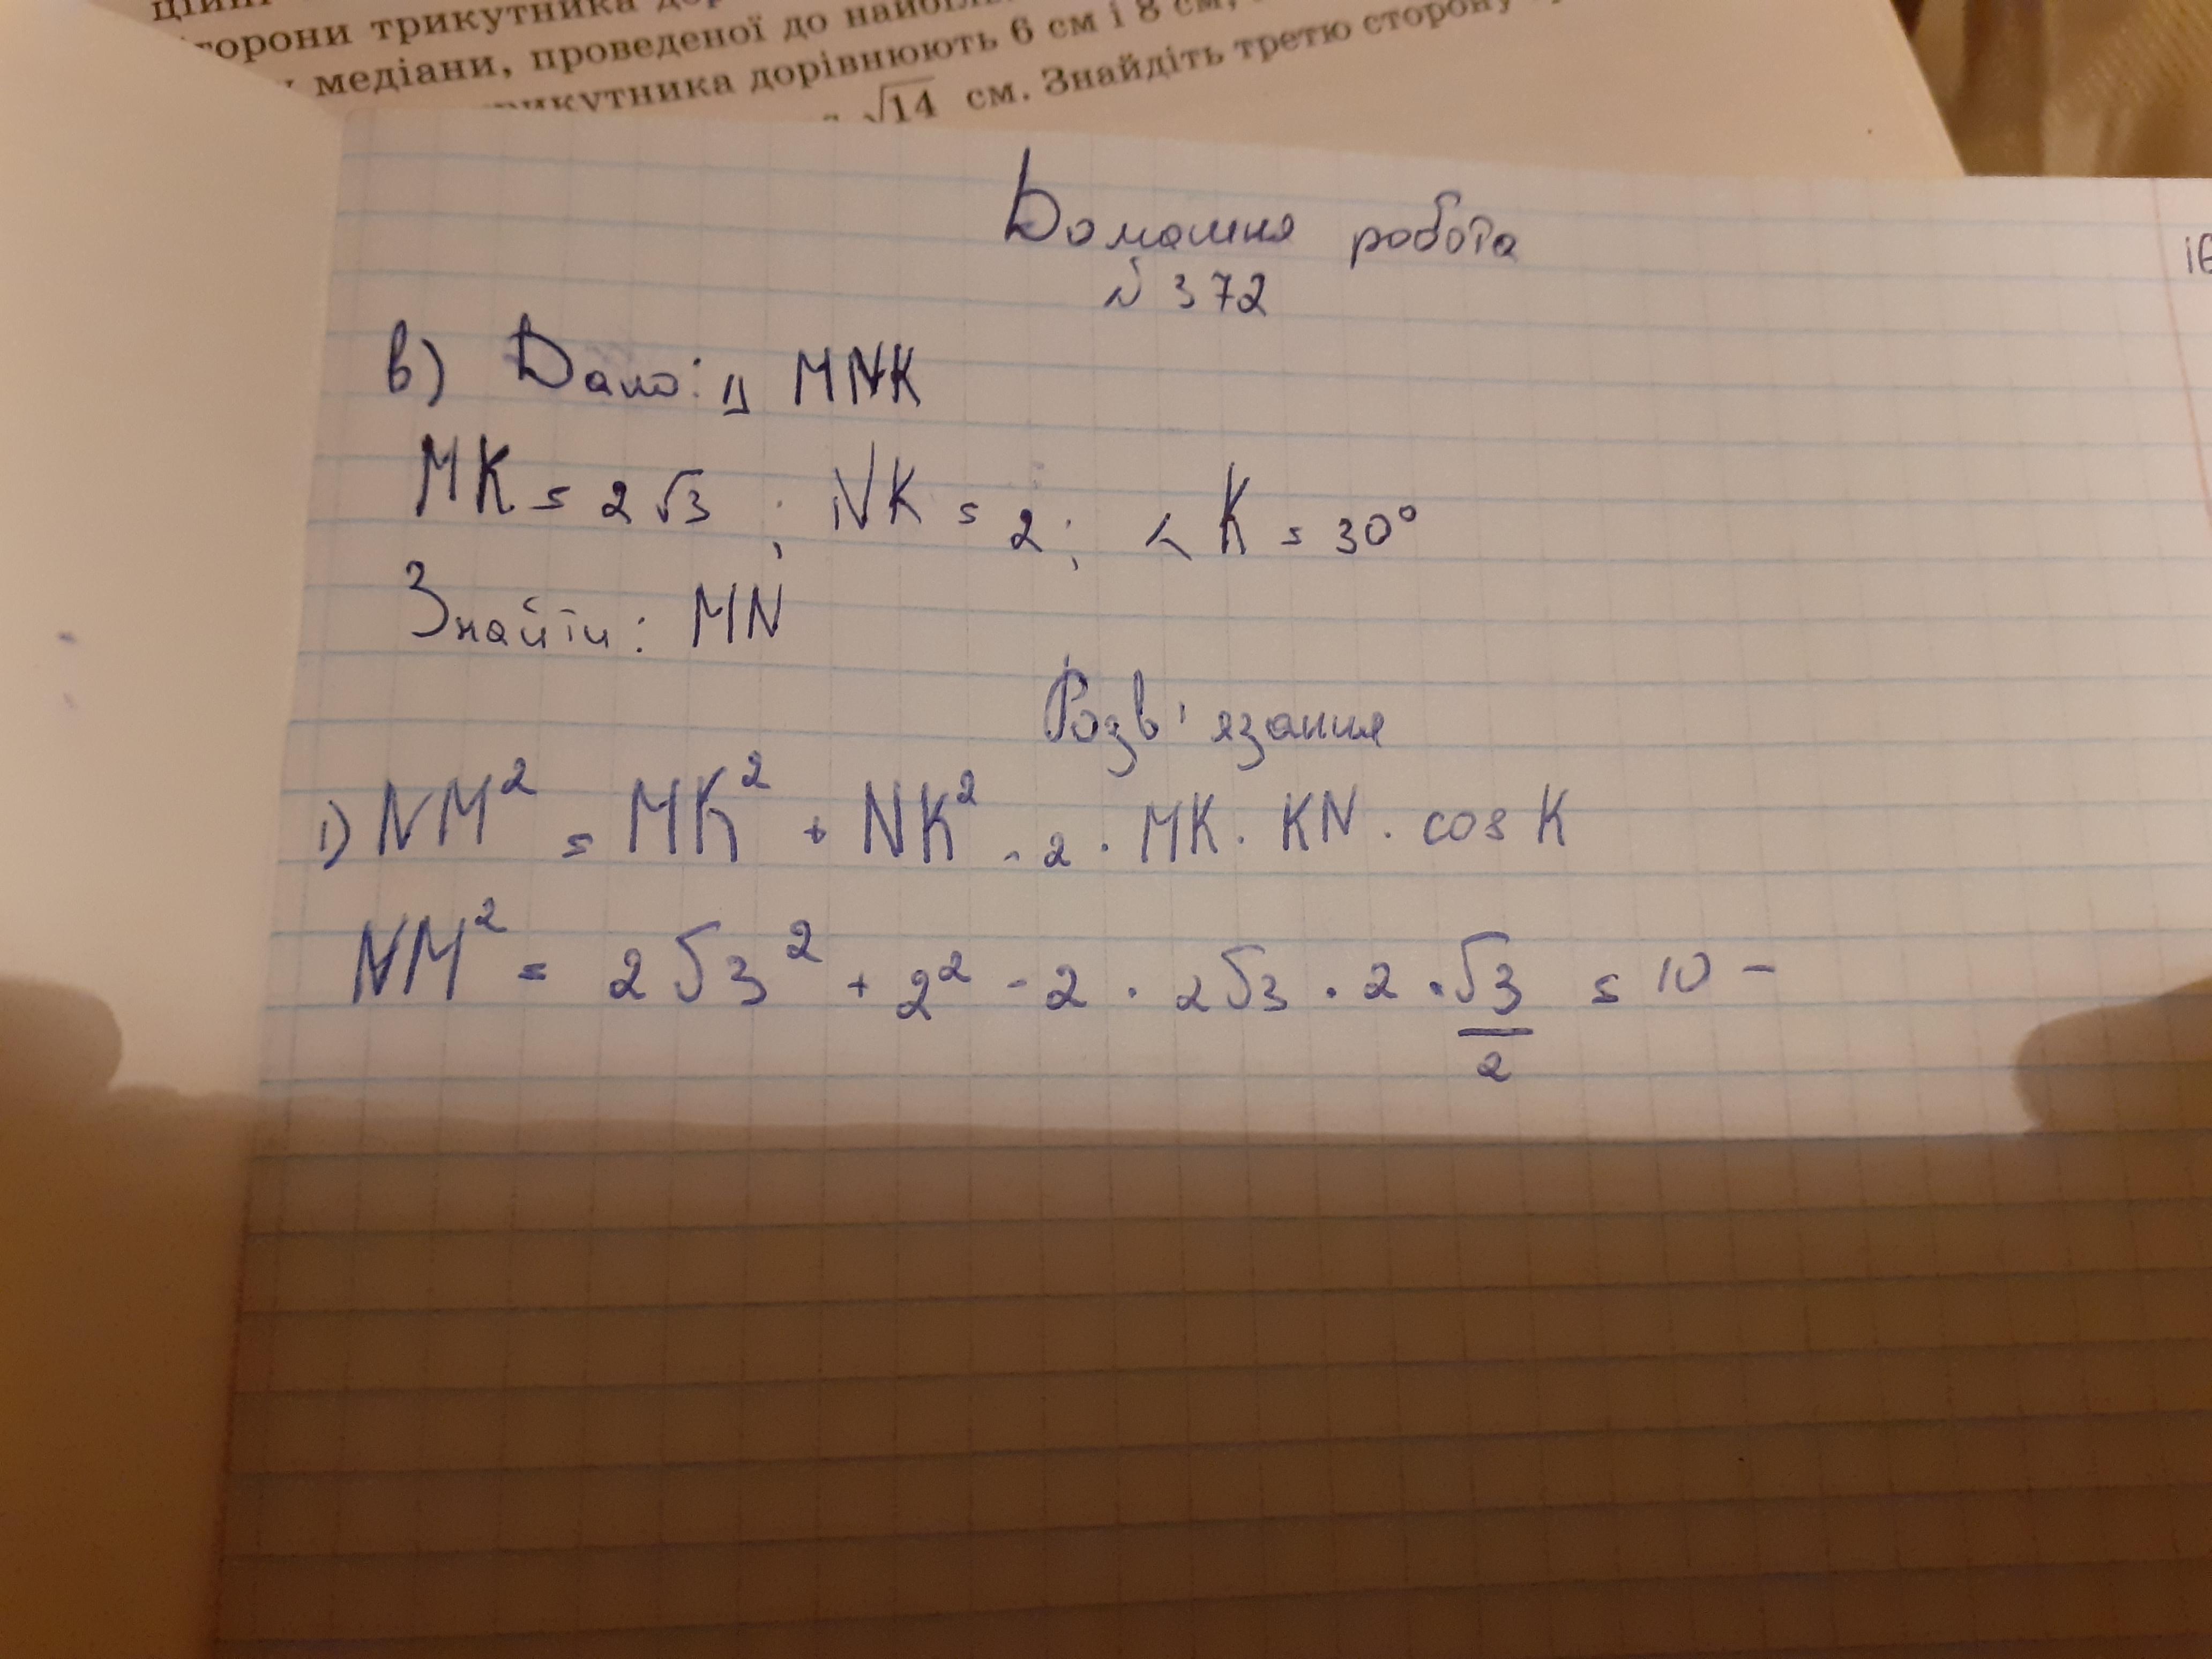 торони трикутника
медіани, проведеної до
рикутника дорівнюють 6 см і 8 см,
√14 см. Знайдіть третю сторону
Домашня робота
№ 372
в) Дано: Δ MNK
MK = 2√3 ; NK = 2; ∠ K = 30°
Знайти: MN
Розв'язання
1) NM² = MK² + NK² - 2 · MK · KN · cos K
NM² = 2√3² + 2² - 2 · 2√3 · 2 · √3/2 = 10 -